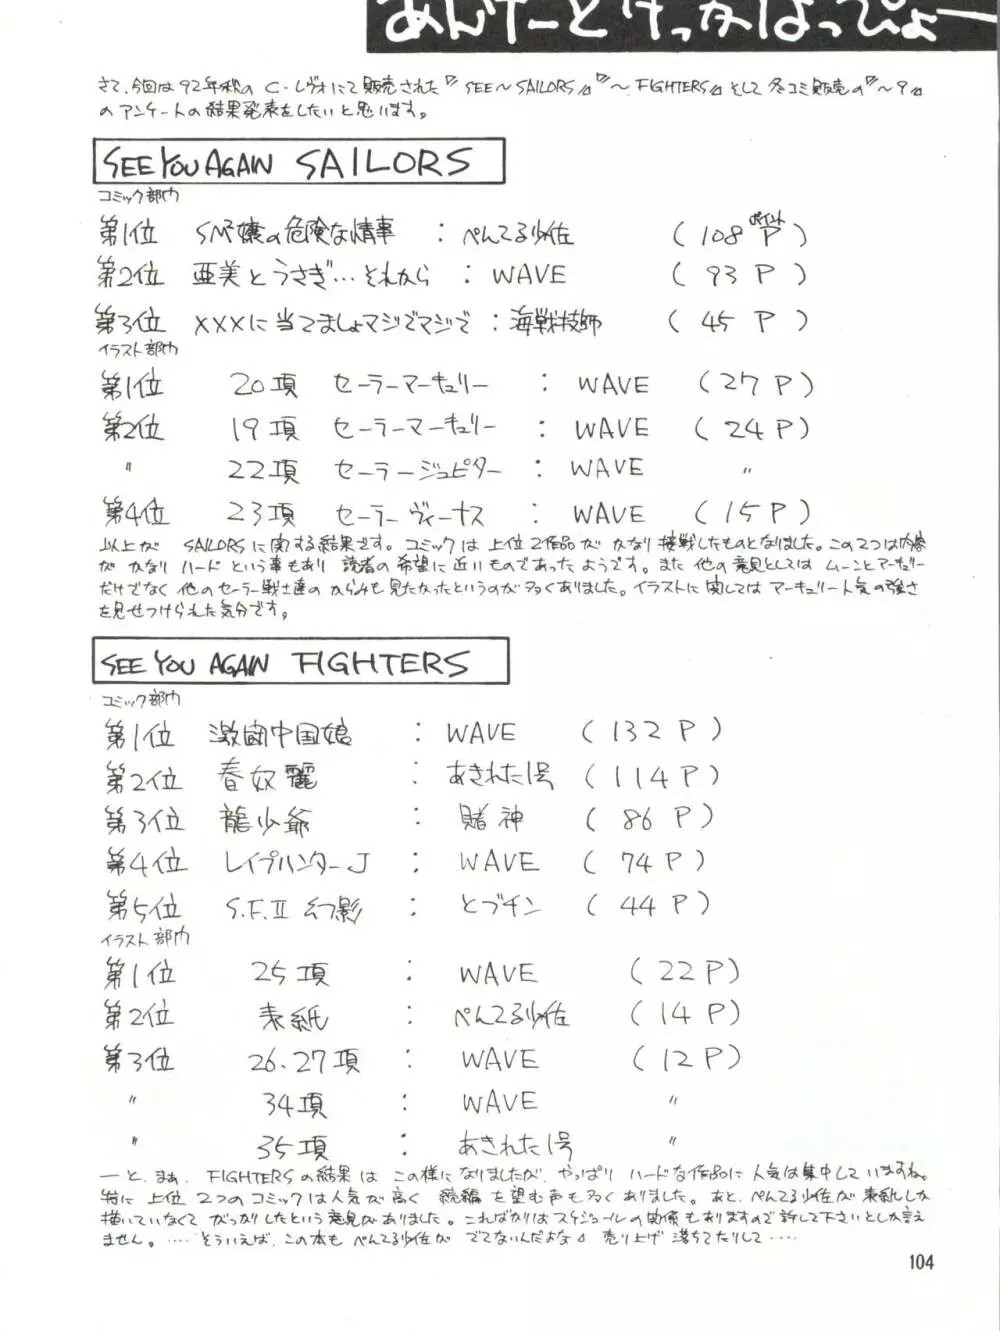 あんけーとけっかはっぴょー
さて、今回は92年秋のC・レヴォにて販売された『SEE～SAILORS』『～FIGHTERS』そして冬コミ販売の『～9』
のアンケートの結果発表をしたいと思います。
SEE YOU AGAIN SAILORS
コミック部門
第1位 SM嬢の危険な情事 : ぺんてる少佐 (108P)
ポイント
第2位 亜美とうさぎ…それから : WAVE (93P)
第3位 XXXに当てましょマジでマジで : 海戦技師 (45P)
イラスト部門
第1位 20項 セーラーマーキュリー : WAVE (27P)
第2位 19項 セーラーマーキュリー : WAVE (24P)
〃 22項 セーラージュピター : WAVE 〃
第4位 23項 セーラーヴィーナス : WAVE (15P)
以上が SAILORSに関する結果です。コミックは上位2作品がかなり接戦したものとなりました。この2つは内容
がかなりハードという事もあり読者の希望に近いものであったようです。また他の意見としてはムーンとマーキュリー
だけでなく他のセーラー戦士達のからみも見たかったというのが多くありました。イラストに関してはマーキュリー人気の強さ
を見せつけられた気分です。
SEE YOU AGAIN FIGHTERS
コミック部門
第1位 激闘中国娘 : WAVE (132P)
第2位 春奴麗 : あきれた1号 (114P)
第3位 龍少爺 : 賭神 (86P)
第4位 レイプハンターJ : WAVE (74P)
第5位 S.F.II 幻影 : とブチン (44P)
イラスト部門
第1位 25項 : WAVE (22P)
第2位 表紙 : ぺんてる少佐 (14P)
第3位 26.27項 : WAVE (12P)
〃 34項 : WAVE 〃
〃 35項 : あきれた1号 〃
—と、まぁ、FIGHTERSの結果はこの様になりましたが、やっぱりハードな作品に人気は集中していますね。
特に上位2つのコミックは人気が高く続編を望む声も多くありました。あと、ぺんてる少佐が表紙しか
描いていなくてがっかりしたという意見がありました。こればかりはスケジュールの関係もありますので許して下さいとしか言え
ません。……そういえば、この本もぺんてる少佐がでてないんだよな 売り上げ落ちてたりして……
104